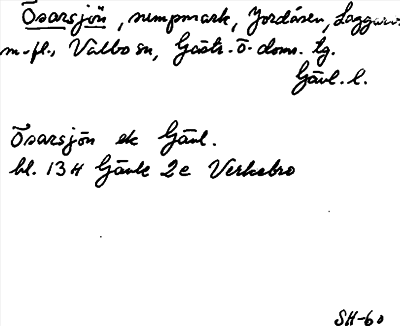 Ösarsjön, sumpmark, Jordåsen, Laggarv.
m.fl., Valbo sn, Gästr. Ö. doms. tg.
Gävl. l.
Ösarsjön ek Gävl.
bl. 13H Gävle 2e Verkebro
SH-60